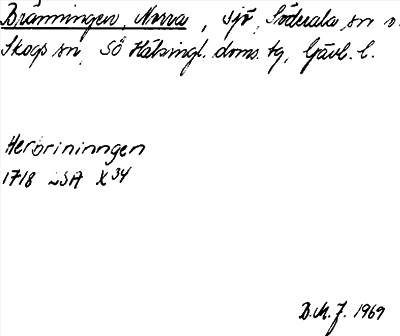 Bränningen, Norra, sjö, Söderala sn o.
Skogs sn, SÖ Hälsingl. doms. tg, Gävl. l.
Herörininngen
1718 LSA X34
B.M.J. 1969